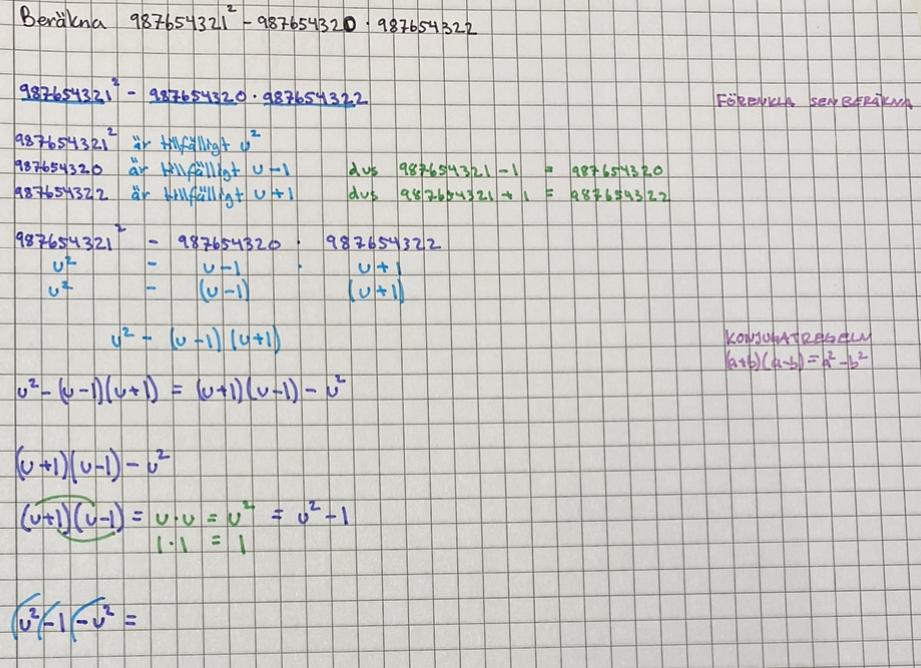 Beräkna 987654321² - 987654320 · 987654322
987654321² - 987654320 · 987654322
FÖRENKLA SEN BERÄKNA
987654321² är tillfälligt u²
987654320 är tillfälligt u-1 dvs 987654321-1 = 987654320
987654322 är tillfälligt u+1 dvs 987654321+1 = 987654322
987654321² - 987654320 · 987654322
u² - u-1 · u+1
u² - (u-1) (u+1)
u² - (u-1)(u+1)
KONJUGATREGELN
(a+b)(a-b)=a²-b²
u²-(u-1)(u+1) = (u+1)(u-1)-u²
(u+1)(u-1)-u²
(u+1)(u-1) = u·u = u² = u²-1
1·1 = 1
(u²-1)-u² =